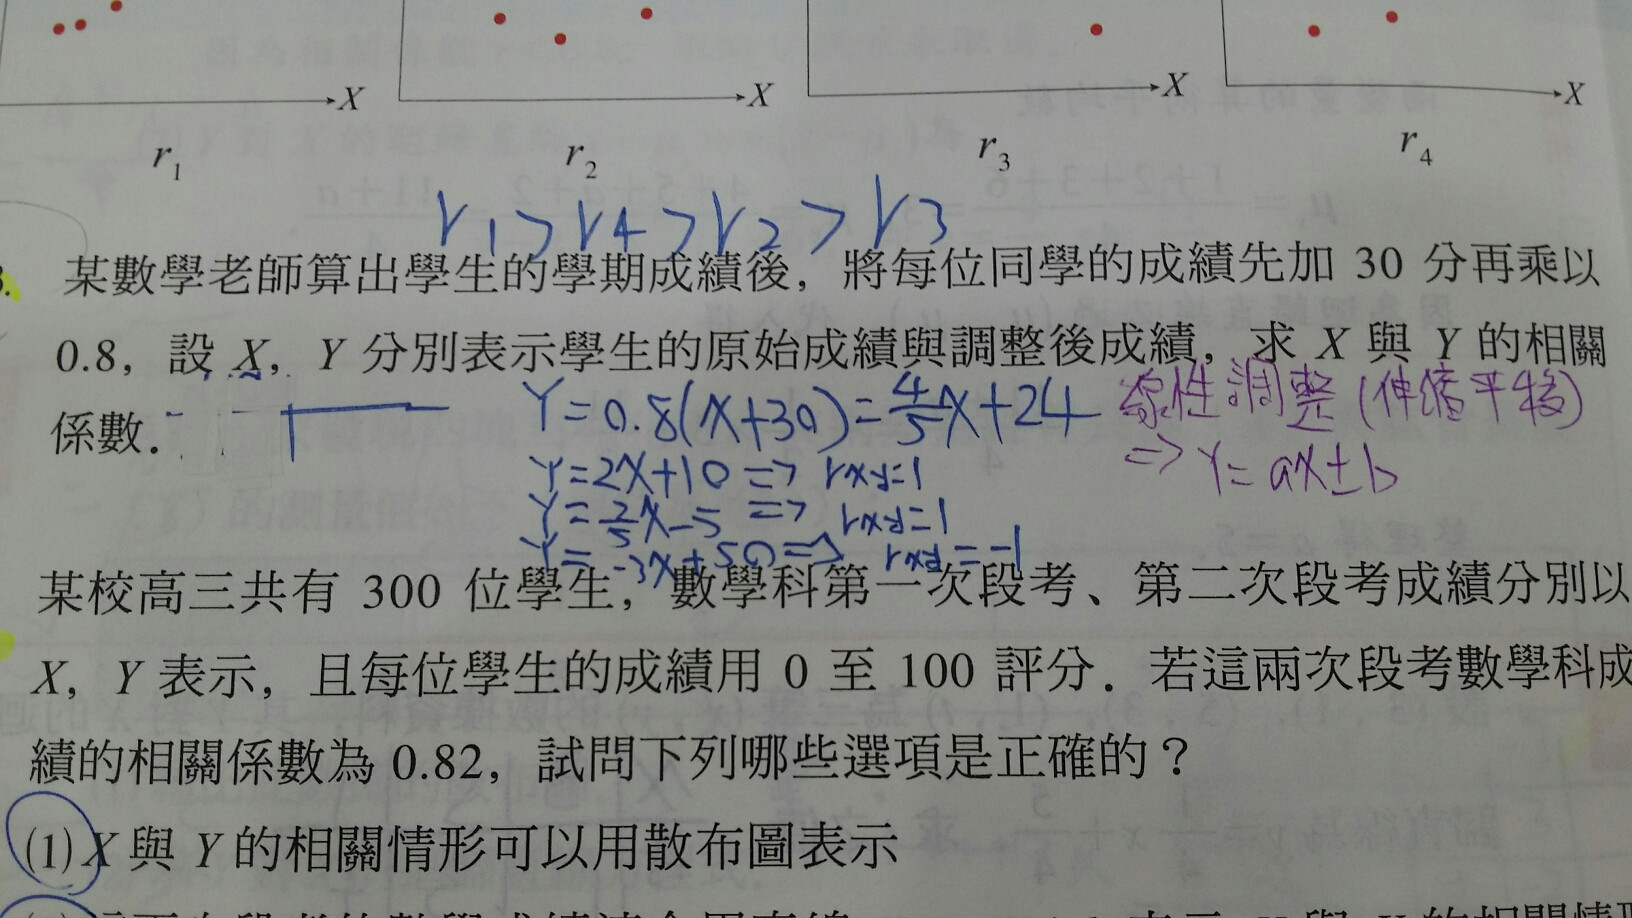 X X X X
r1 r2 r3 r4
r1>r4>r2>r3
某數學老師算出學生的學期成績後，將每位同學的成績先加 30 分再乘以
0.8，設 X，Y 分別表示學生的原始成績與調整後成績，求 X 與 Y 的相關
係數．
Y=0.8(X+30)=4/5X+24
線性調整(伸縮平移)
=>Y=aX±b
Y=2X+10=>rxy=1
Y=2/5X-5=>rxy=1
Y=-3X+50=>rxy=-1
某校高三共有 300 位學生，數學科第一次段考、第二次段考成績分別以
X，Y 表示，且每位學生的成績用 0 至 100 評分．若這兩次段考數學科成
績的相關係數為 0.82，試問下列哪些選項是正確的？
(1) X 與 Y 的相關情形可以用散布圖表示